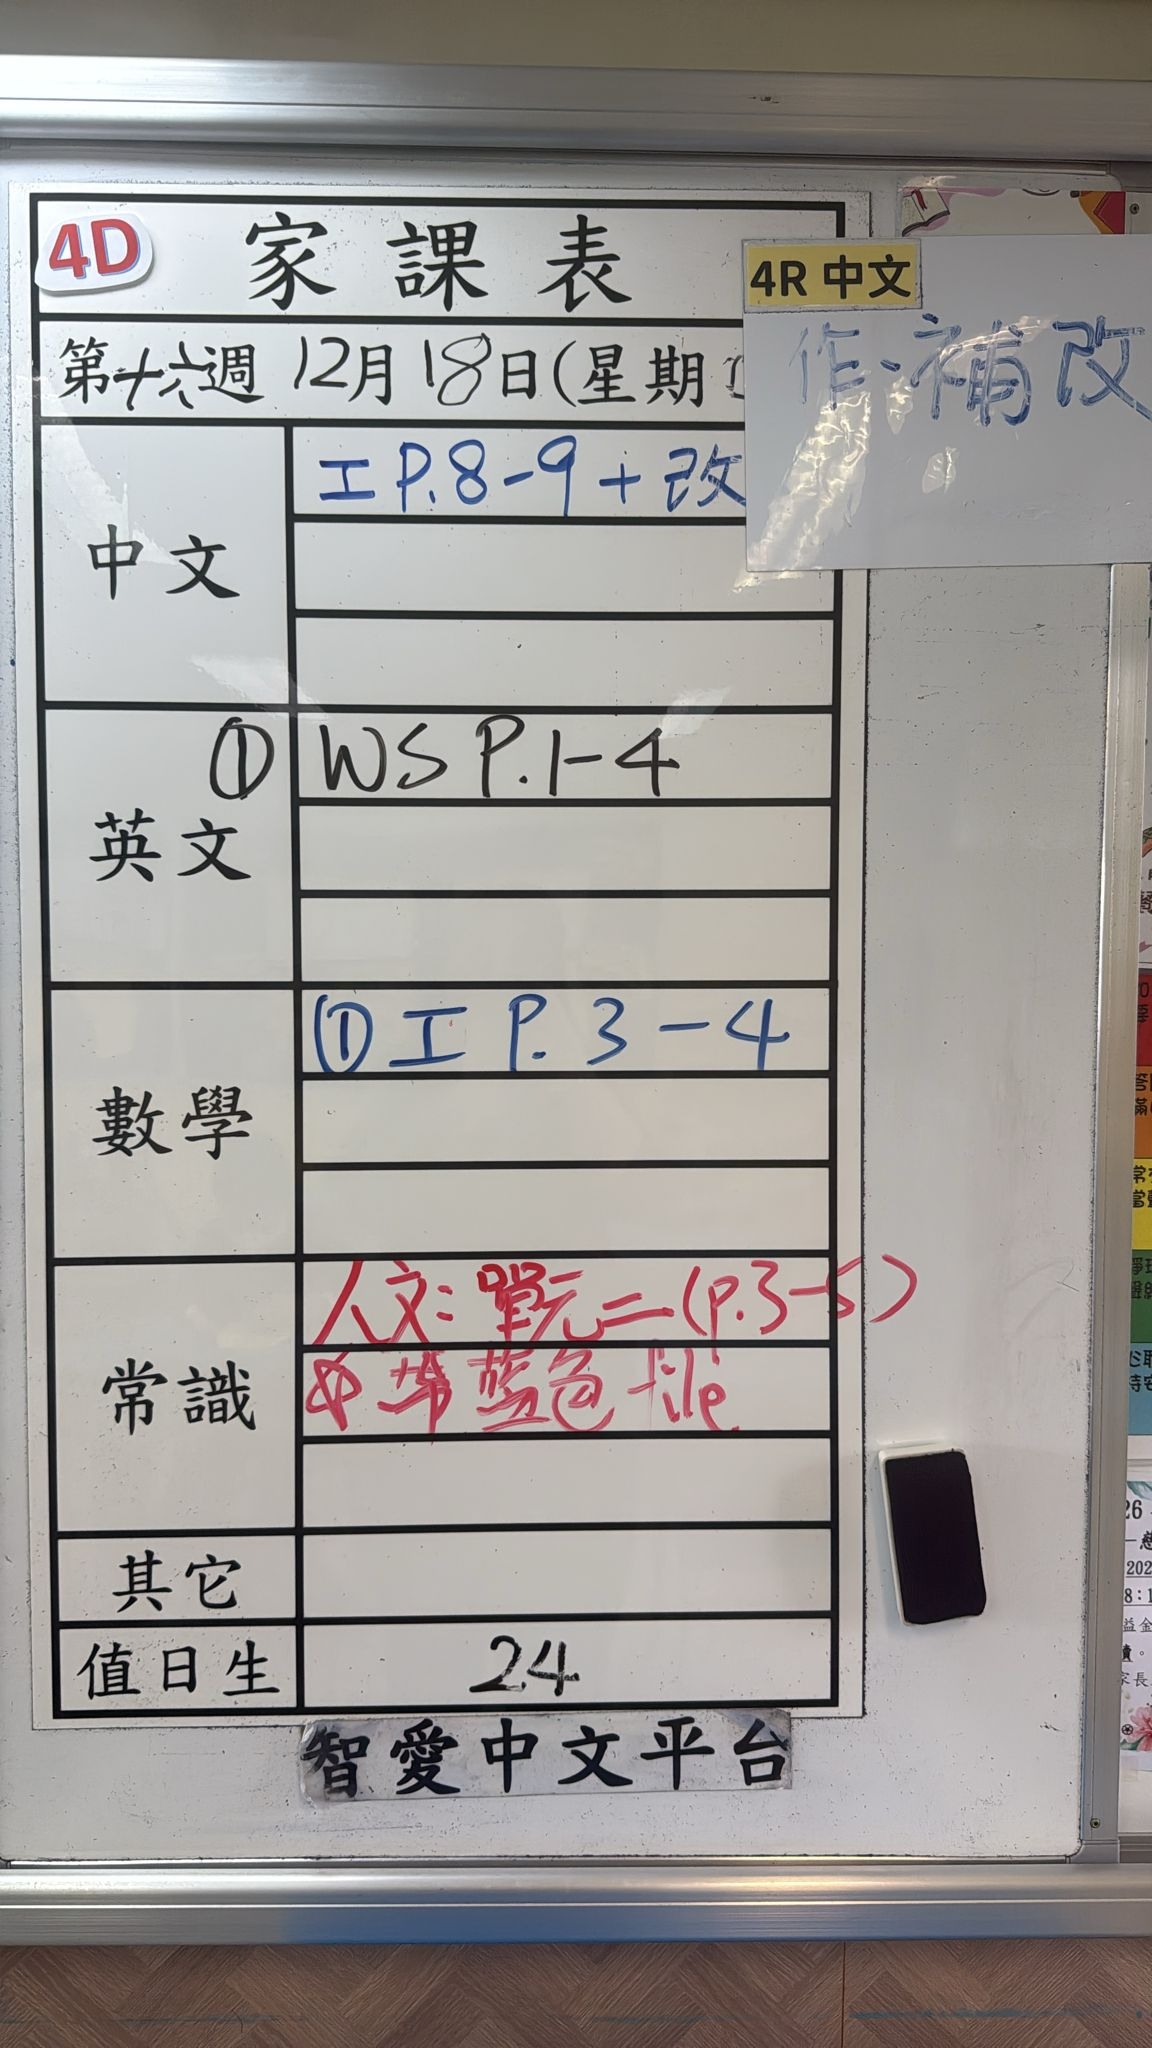 4D 家課表
4R 中文
作·補改
第十六週 12月18日(星期
中文
工 P.8-9 + 改
① WS P.1-4
英文
① 工 P.3-4
數學
人文: 單元二 (p.3-5)
帶藍色 file
常識
其它
值日生 24
智愛中文平台